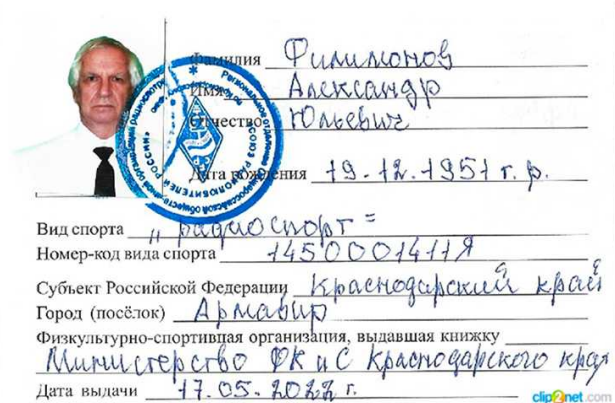 Фамилия Филимонов
Имя Александр
Отчество Юльевич
Дата рождения 19.12.1951 г. р.
Вид спорта „радиоспорт"
Номер-код вида спорта 1450001411Я
Субъект Российской Федерации Краснодарский край
Город (посёлок) Армавир
Физкультурно-спортивная организация, выдавшая книжку
Министерство ФК и С Краснодарского края
Дата выдачи 17.05.2022 г.
Региональное отделение
«СОЮЗ РАДИОЛЮБИТЕЛЕЙ РОССИИ»
clip2net.com